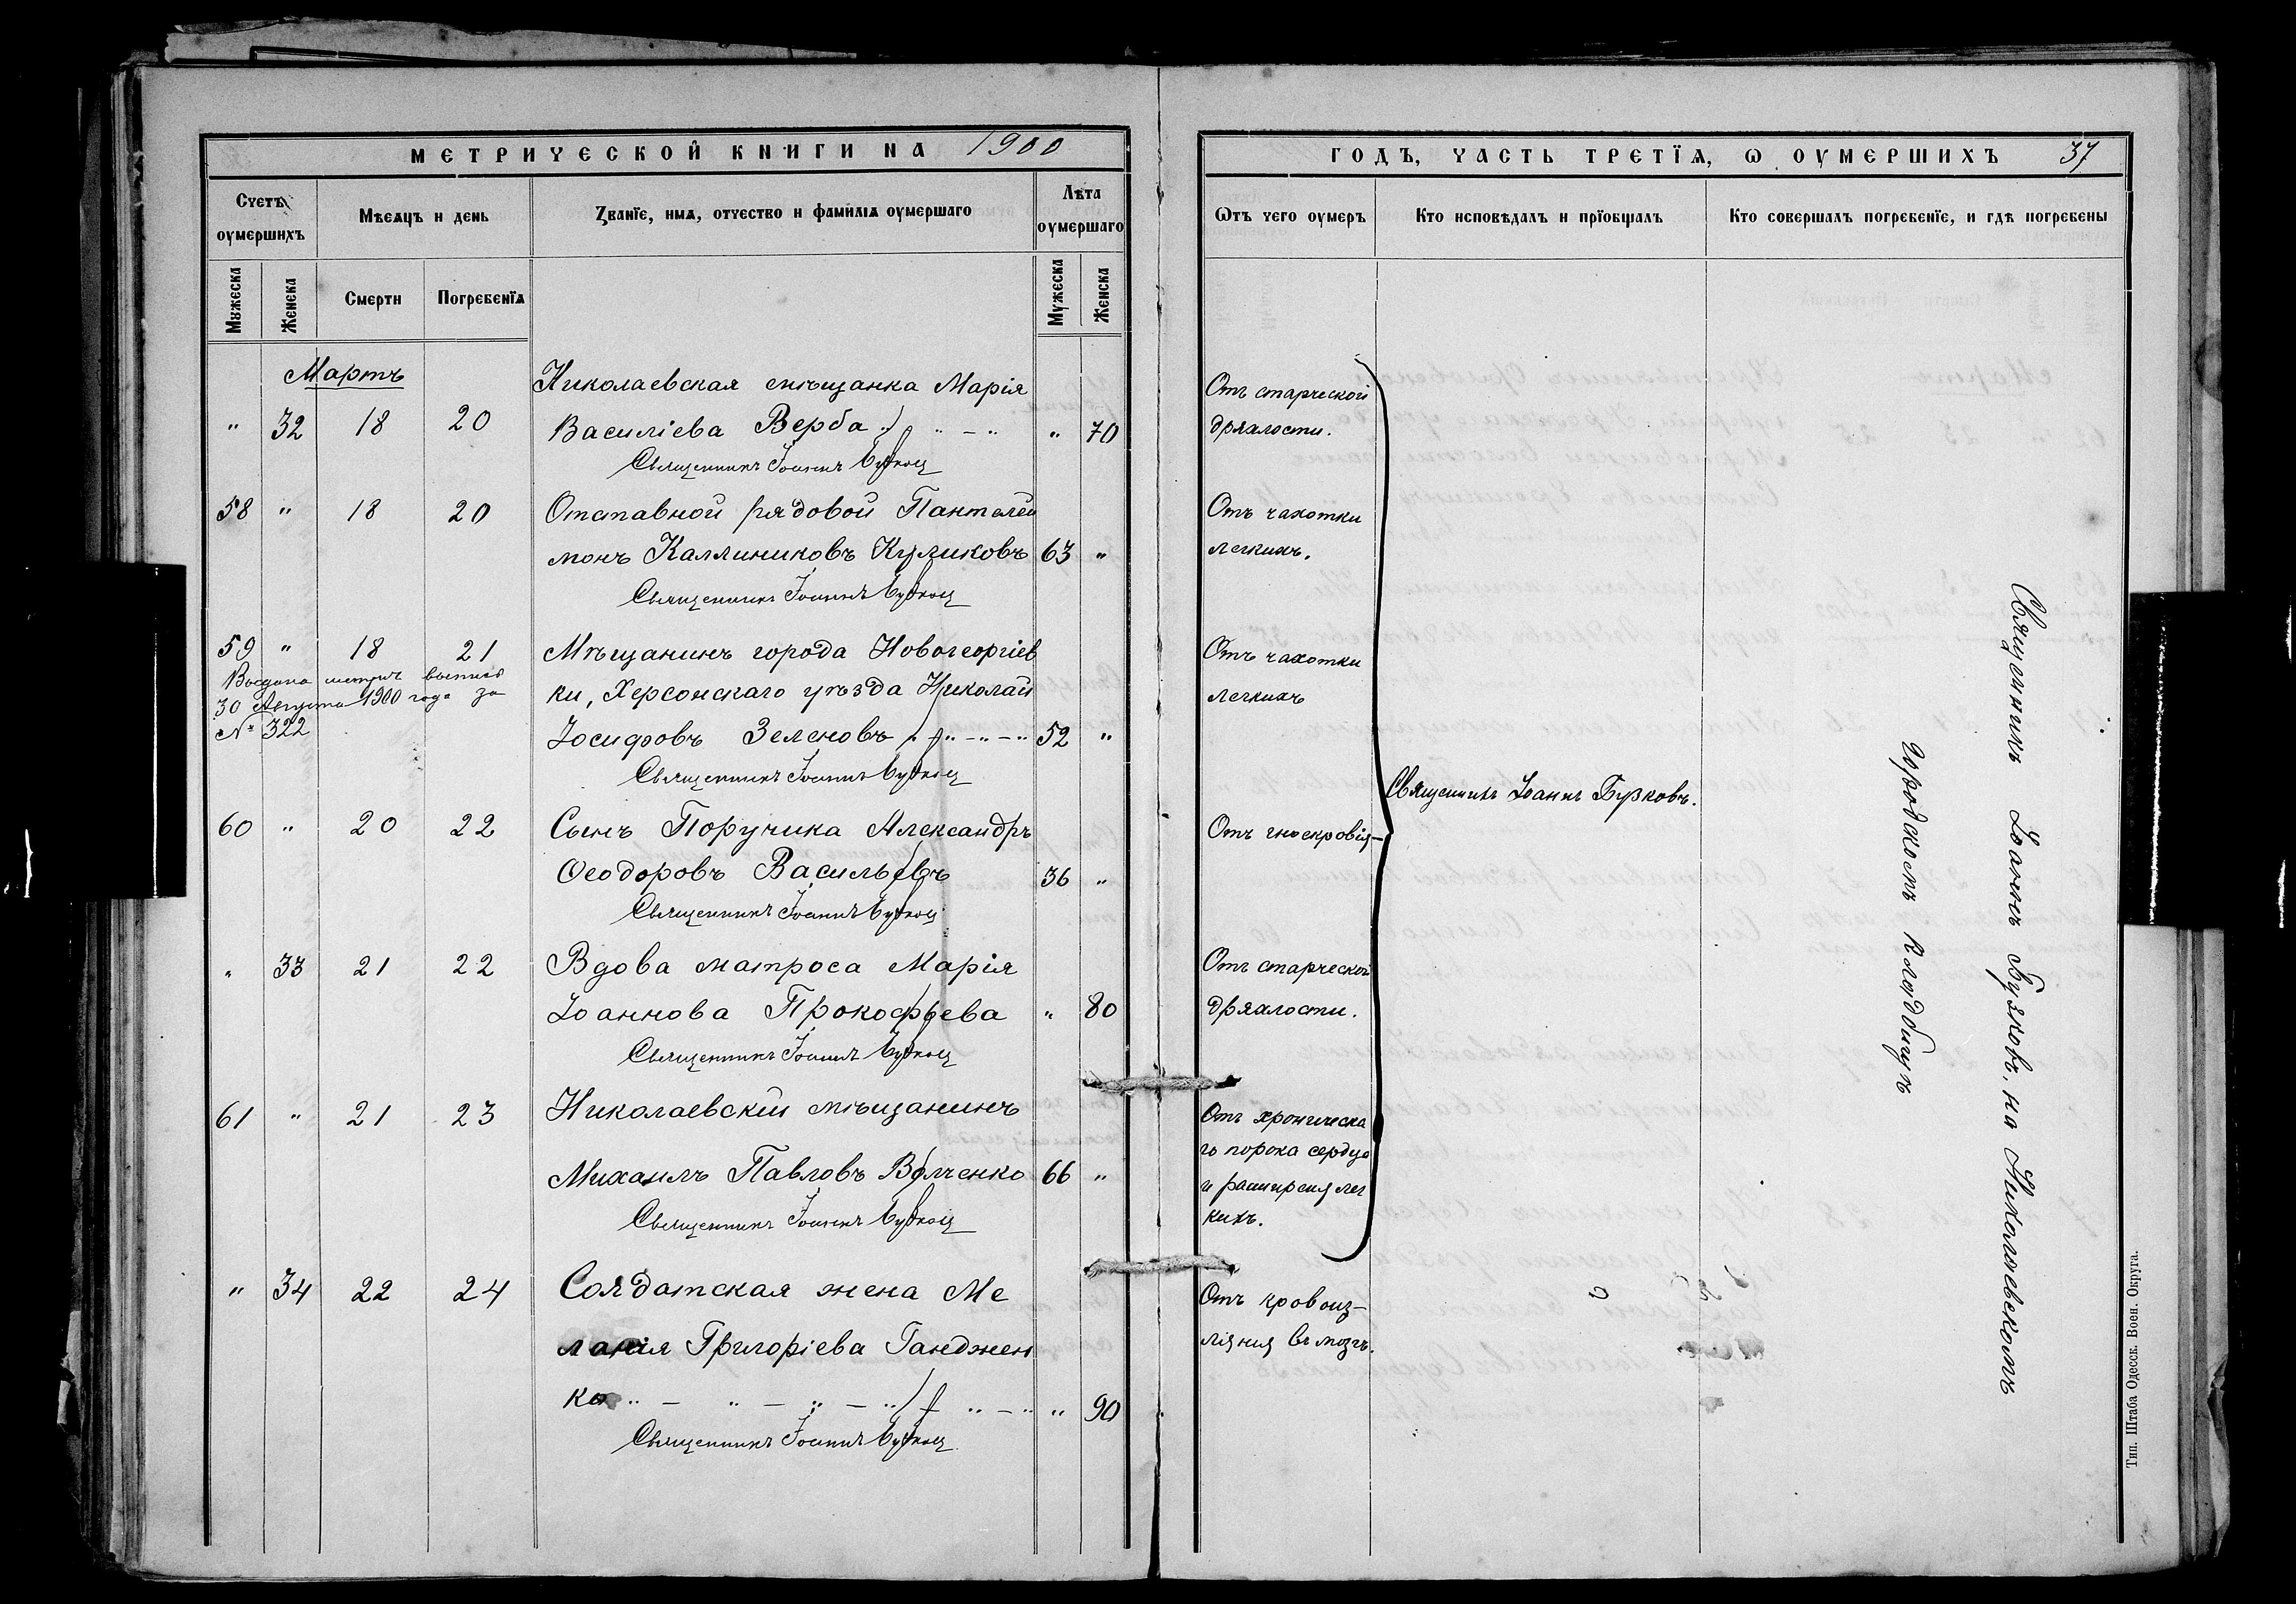 МЕТРИЧЕСКОЙ КНИГИ НА 1900
Счетъ оумершихъ
Мѣсяцъ и день
Званїе, имѧ, отчество и фамилїѧ оумершаго
Лѣта оумершаго
Мꙋжеска
Женска
Смерти
Погребенїѧ
Мꙋжеска
Женска
Мартъ
Николаевская мѣщанка Марія
" 32 18 20 Василіева Верба " — " " 70
Священникъ Іоаннъ Бузковъ
58 " 18 20 Отставной рядовой Пантелей
монъ Каллиниковъ Куликовъ 63 "
Священникъ Іоаннъ Бузковъ
59 " 18 21 Мѣщанинъ города Новогеоргіев
Выдана метрич выпись
ки, Херсонскаго уѣзда Николай
30 Августа 1900 года за
№ 322
Іосифовъ Зеленовъ " — " — " 52 "
Священникъ Іоаннъ Бузковъ
60 " 20 22 Сынъ Поручика Александръ
Ѳеодоровъ Васильевъ 36 "
Священникъ Іоаннъ Бузковъ
" 33 21 22 Вдова матроса Марія
Іоаннова Прокофьева " 80
Священникъ Іоаннъ Бузковъ
61 " 21 23 Николаевскій мѣщанинъ
Михаилъ Павловъ Волченко 66 "
Священникъ Іоаннъ Бузковъ
" 34 22 24 Солдатская жена Ме
ланія Григоріева Ганджен
ко " — " — " — " — " — " " 90
Священникъ Іоаннъ Бузковъ
ГОДЪ, ЧАСТЬ ТРЕТЇѦ, Ѡ ОУМЕРШИХЪ 37
Ѿтъ чего оумеръ
Кто исповѣдалъ и прїобщалъ
Кто совершалъ погребенїе, и гдѣ погребены
Отъ старческой
дряхлости.
Отъ чахотки
легкихъ.
Отъ чахотки
легкихъ
Отъ гноекровія
Отъ старческой
дряхлости.
Отъ хроническа
го порока сердца
и расширенія лег
кихъ.
Отъ кровоиз-
ліянія въ мозгъ.
Священникъ Іоаннъ Бузковъ.
Священникъ Іоаннъ Бузковъ, на Николаевскомъ
городскомъ кладбищѣ
Тип. Штаба Одесск. Воен. Округа.